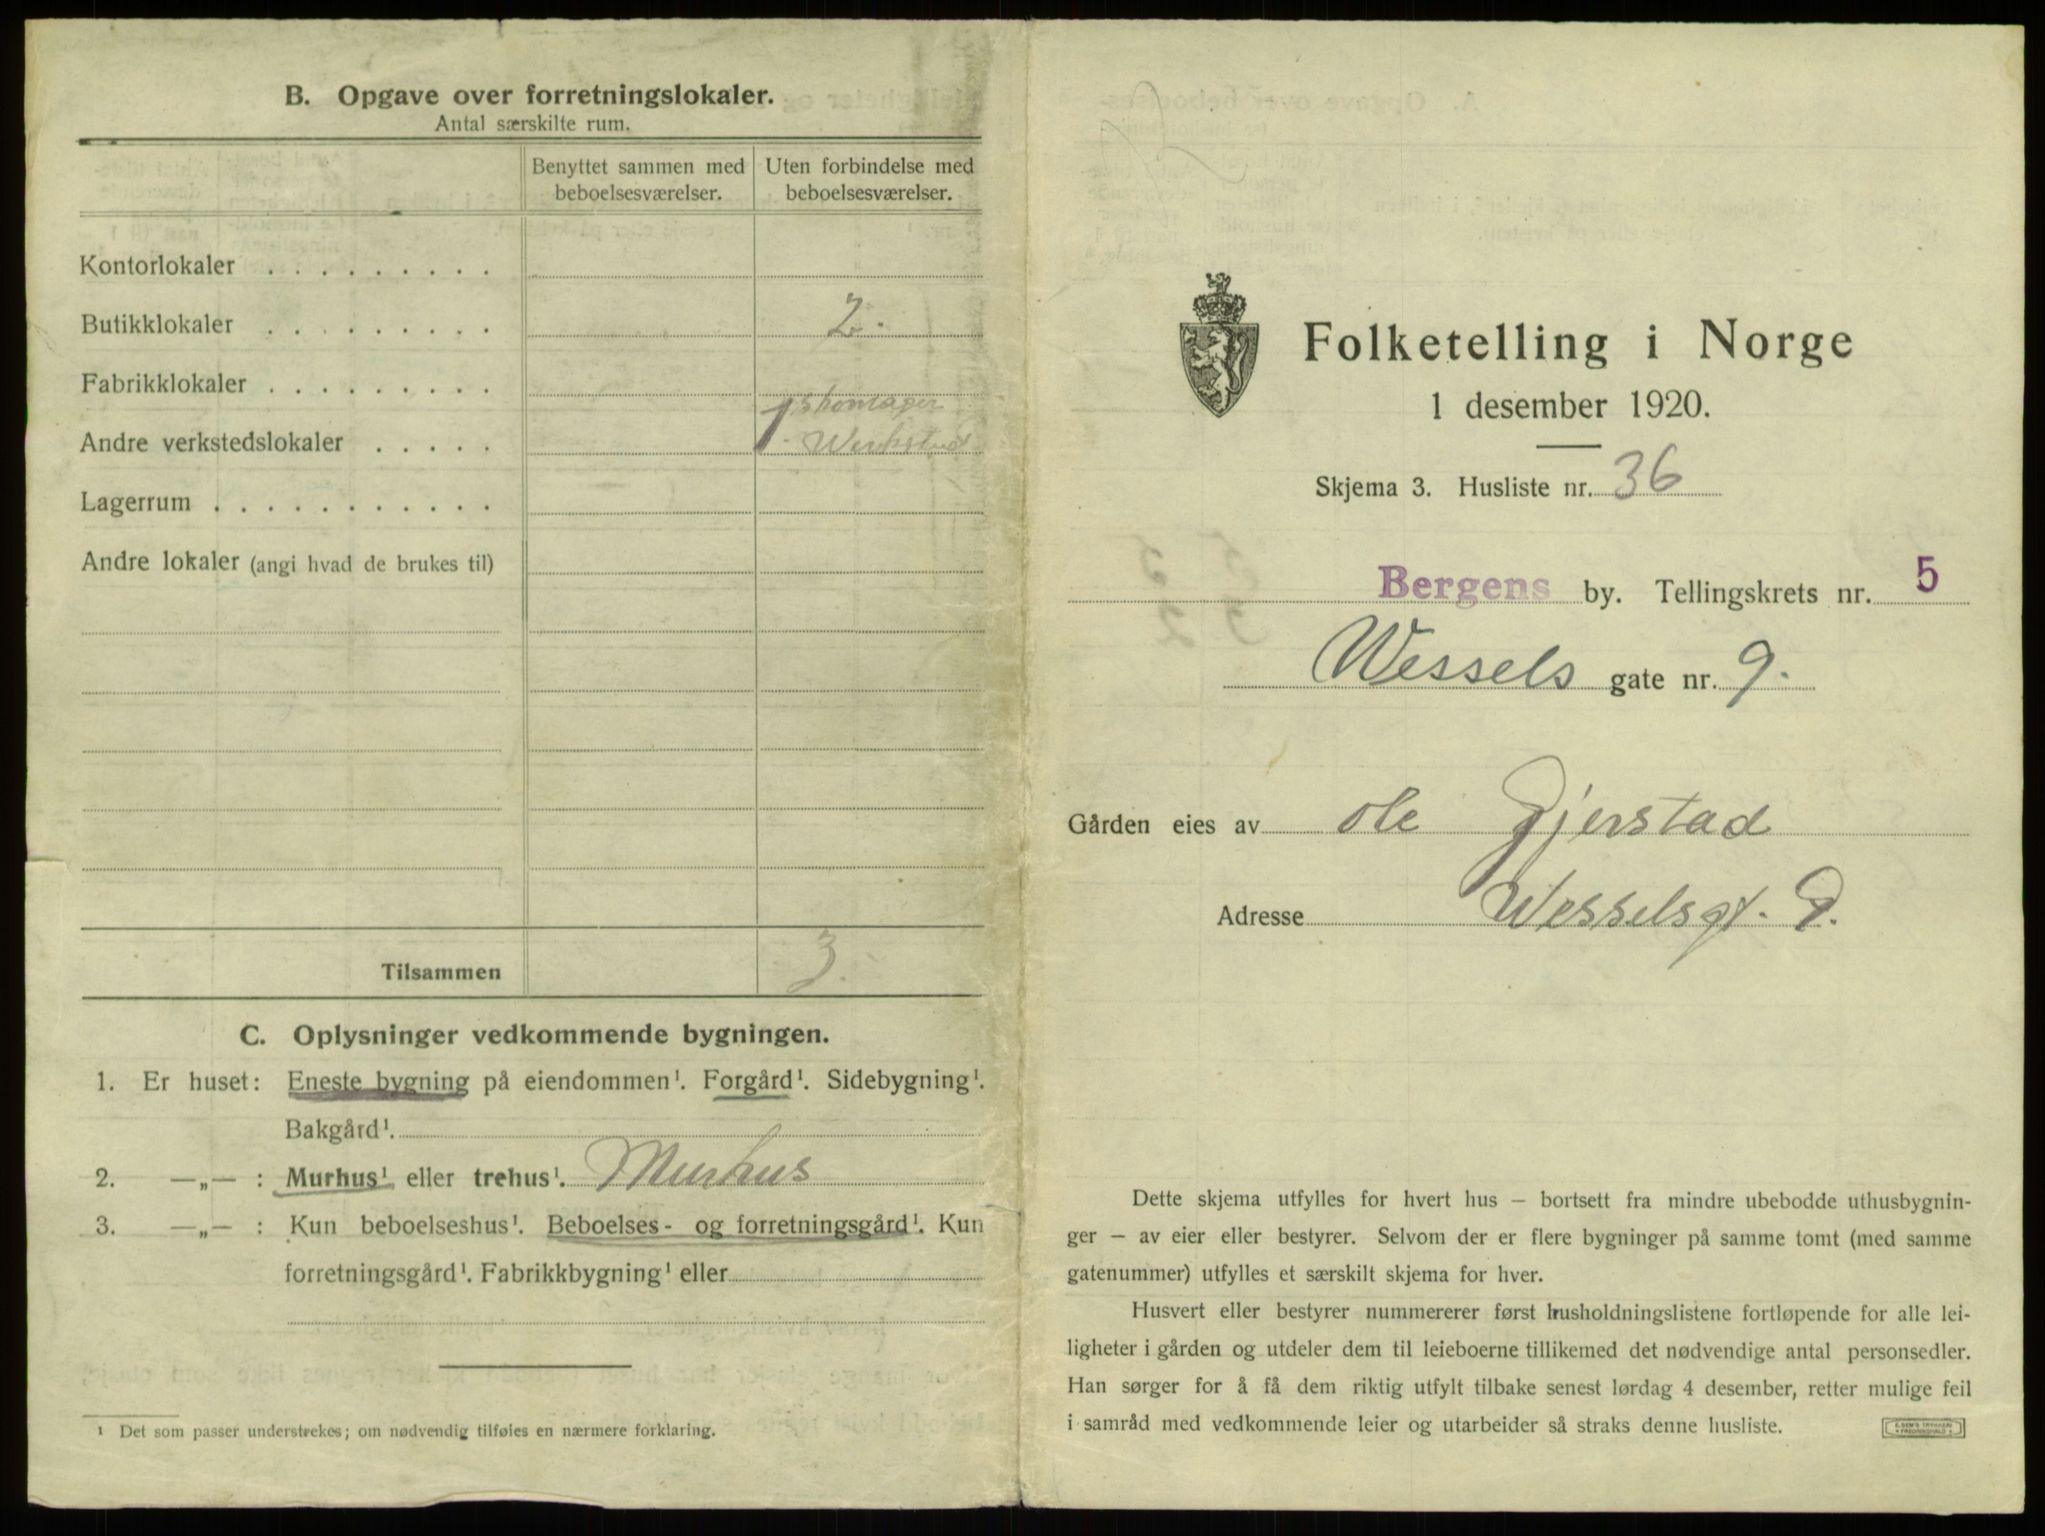 B. Opgave over forretningslokaler.
Antal særskilte rum.
Benyttet sammen med beboelsesværelser.
Uten forbindelse med beboelsesværelser.
Kontorlokaler . . . . . . . . .
Butikklokaler . . . . . . . . . 2.
Fabrikklokaler . . . . . . . . .
Andre verkstedslokaler . . . . . 1. Skomager Werksted
Lagerrum . . . . . . . . . . . .
Andre lokaler (angi hvad de brukes til)
Tilsammen 3.
C. Oplysninger vedkommende bygningen.
1. Er huset: Eneste bygning på eiendommen¹. Forgård¹. Sidebygning¹.
Bakgård¹.
2. —„— : Murhus¹ eller trehus¹. Murhus
3. —„— : Kun beboelseshus¹. Beboelses- og forretningsgård¹. Kun
forretningsgård¹. Fabrikkbygning¹ eller
¹ Det som passer understrekes; om nødvendig tilføies en nærmere forklaring.
Folketelling i Norge
1 desember 1920.
Skjema 3. Husliste nr. 36
Bergens by. Tellingskrets nr. 5
Wessels gate nr. 9.
Gården eies av Ole Gjerstad
Adresse Wesselsgt. 9.
Dette skjema utfylles for hvert hus — bortsett fra mindre ubebodde uthusbygnin-
ger — av eier eller bestyrer. Selvom der er flere bygninger på samme tomt (med samme
gatenummer) utfylles et særskilt skjema for hver.
Husvert eller bestyrer nummererer først husholdningslistene fortløpende for alle lei-
ligheter i gården og utdeler dem til leieboerne tillikemed det nødvendige antal personsedler.
Han sørger for å få dem riktig utfylt tilbake senest lørdag 4 desember, retter mulige feil
i samråd med vedkommende leier og utarbeider så straks denne husliste.